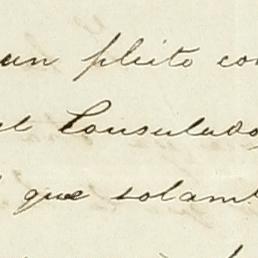 un pleito con
el Consulado,
que solam